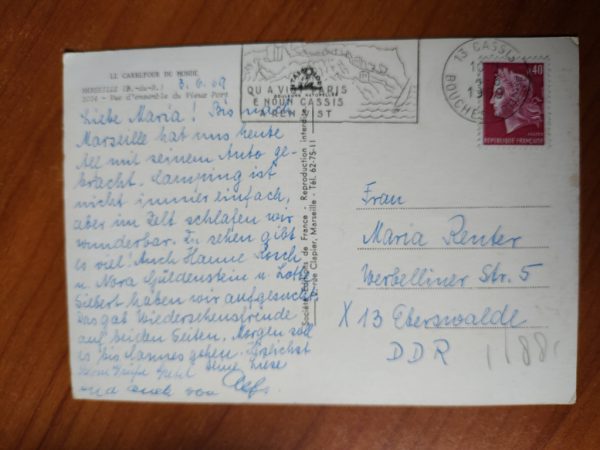 LE CARREFOUR DU MONDE
MARSEILLE (B.-du-R.)
Vue d'ensemble du Vieux Port
3. 6. 69
Liebe Maria! Bis nach
Marseille hat uns heute
Alf mit seinem Auto ge-
bracht. Camping ist
nicht immer einfach,
aber im Zelt schlafen wir
wunderbar. Zu sehen gibt
es viel! Auch Hanne
u. Nora Güldenstein u. Lotte
Siebert haben wir aufgesucht
Das gab Wiedersehensfreude
auf beiden Seiten. Morgen soll
es bis Cannes gehen. Herzlichst
Deine Liese
und auch von
QU A VIST PARIS
E NOUN CASSIS
A REN VIST
13 CASSIS
BOUCHES
0,40
REPUBLIQUE FRANÇAISE
Société Editions de France - Reproduction interdite
rue Clapier, Marseille - Tél. 62-75-11
Frau
Maria Renter
Werbelliner Str. 5
X 13 Eberswalde
DDR